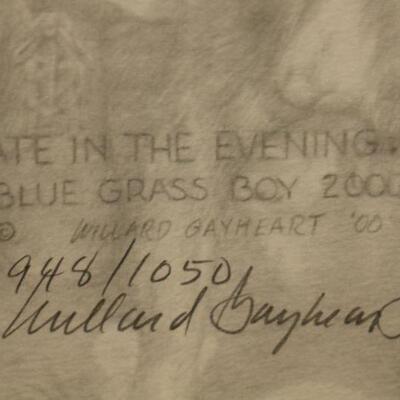 ATE IN THE EVENING.
BLUE GRASS BOY 2000
© WILLARD GAYHEART '00
948/1050
Willard Gayheart